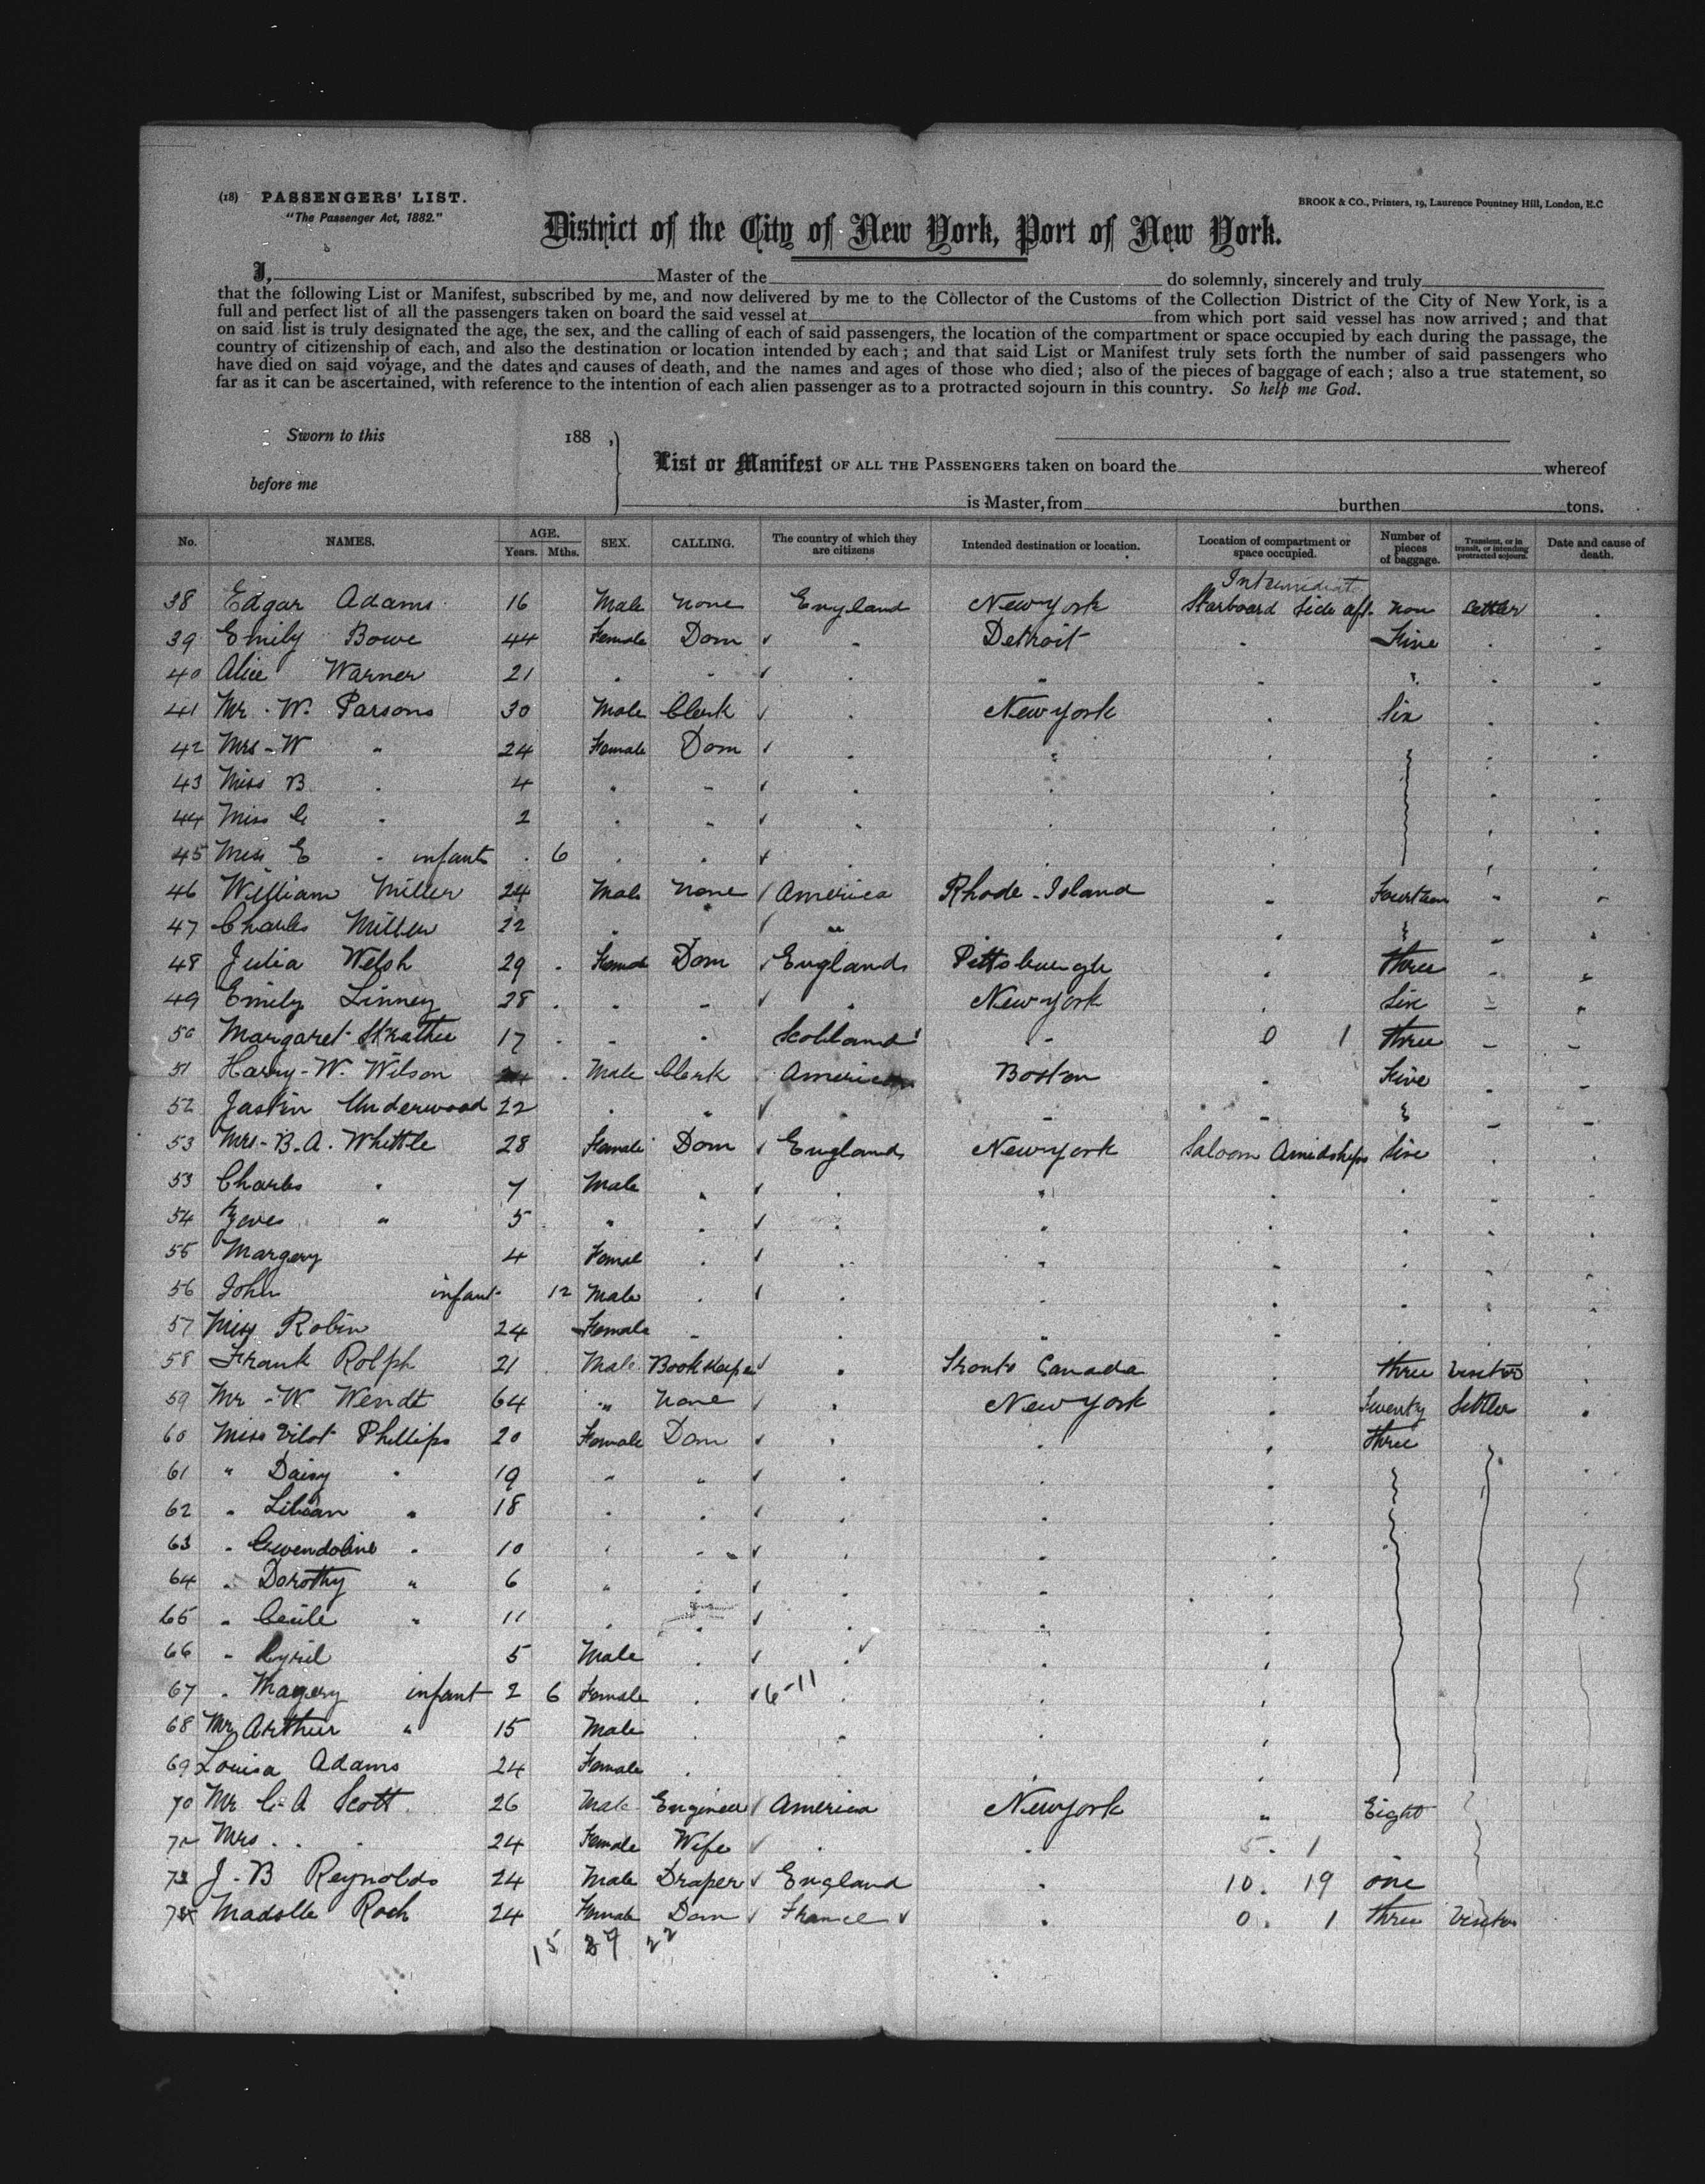 (18) PASSENGERS' LIST.
"The Passenger Act, 1882."
BROOK & CO., Printers, 19, Laurence Pountney Hill, London, E.C
District of the City of New York, Port of New York.
I, Master of the do solemnly, sincerely and truly
that the following List or Manifest, subscribed by me, and now delivered by me to the Collector of the Customs of the Collection District of the City of New York, is a
full and perfect list of all the passengers taken on board the said vessel at from which port said vessel has now arrived; and that
on said list is truly designated the age, the sex, and the calling of each of said passengers, the location of the compartment or space occupied by each during the passage, the
country of citizenship of each, and also the destination or location intended by each; and that said List or Manifest truly sets forth the number of said passengers who
have died on said voyage, and the dates and causes of death, and the names and ages of those who died; also of the pieces of baggage of each; also a true statement, so
far as it can be ascertained, with reference to the intention of each alien passenger as to a protracted sojourn in this country. So help me God.
Sworn to this 188 ,
before me
List or Manifest OF ALL THE PASSENGERS taken on board the whereof
is Master, from burthen tons.
No. NAMES. AGE. Years. Mths. SEX. CALLING. The country of which they are citizens Intended destination or location. Location of compartment or space occupied. Number of pieces of baggage. Transient, or in transit, or intending protracted sojourn. Date and cause of death.
Intermediat
38 Edgar Adams 16 Male none England New York Starboard Side aft non Settler
39 Emily Bowe 44 Female Dom " Detroit " Five
40 Alice Warner 21 " " " "
41 Mr. W. Parsons 30 Male Clerk " New York " Six
42 Mrs - W " 24 Female Dom " "
43 Miss B " 4 " " "
44 Miss " 2 " " "
45 Miss E " infant 6 " " "
46 William Miller 24 Male none America Rhode-Island " Fourteen
47 Charles Miller 22 " "
48 Julia Welsh 29 Female Dom England Pittsburgh " three
49 Emily Linney 28 " " " New York " Six
50 Margaret 17 " " Scotland " 0 1 three
51 Harry-W. Wilson Male Clerk America Boston " Five
52 Justin Underwood 22 " " " " "
53 Mrs - B. A. Whittle 28 Female Dom England New York Saloon Amidships
53 Charles " 7 Male " " "
54 " 5 " " " "
55 Margery 4 Femal " " "
56 John infant 12 Male " " "
57 Miss Robin 24 Female " " "
58 Frank Rolph 21 Male Book Keeper " Tronto Canada " three Visitor
59 Mr - W Wendt 64 " none " New York " Twenty Settler
60 Miss Vilot Phillips 20 Female Dom " " " three
61 " Daisy " 19 " " " "
62 " Lilian " 18 " " " "
63 " Gwendoline " 10 " " " "
64 " Dorothy " 6 " " " "
65 " Cecile " 11 " " " "
66 " Cyril 5 Male " " "
67 " Magery infant 2 6 Female " 6-11 " "
68 Mr Arthur " 15 Male " " "
69 Louisa Adams 24 Female " " "
70 Mr C. A Scott 26 Male Engineer America New York " Eight
Mrs " " 24 Female Wife " " 5. 1
J - B Reynolds 24 Male Draper England " 10. 19 one
Madslle Roch 24 Female Dom France " 0. 1 three Visitor
15 22